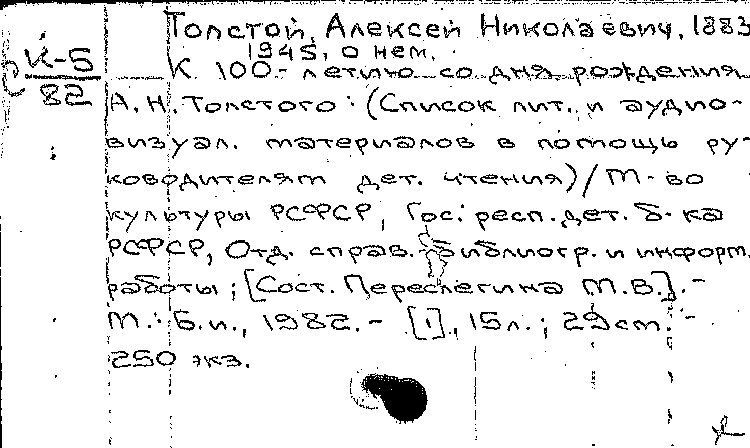 Толстой, Алексей Николаевич, 1883
1945, о нем.
К-5
82
К 100-летию со дня рождения
А.Н.Толстого: (Список лит. и аудио-
визуал. материалов в помощь ру-
ководителям дет. чтения)/М-во
культуры РСФСР, Гос. респ. дет. б-ка
РСФСР, Отд. справ.-библиогр. и информ.
работы; [Сост. Переслегина М.В.].-
М.: Б.и., 1982.- [1], 15л.; 29см.-
250 экз.